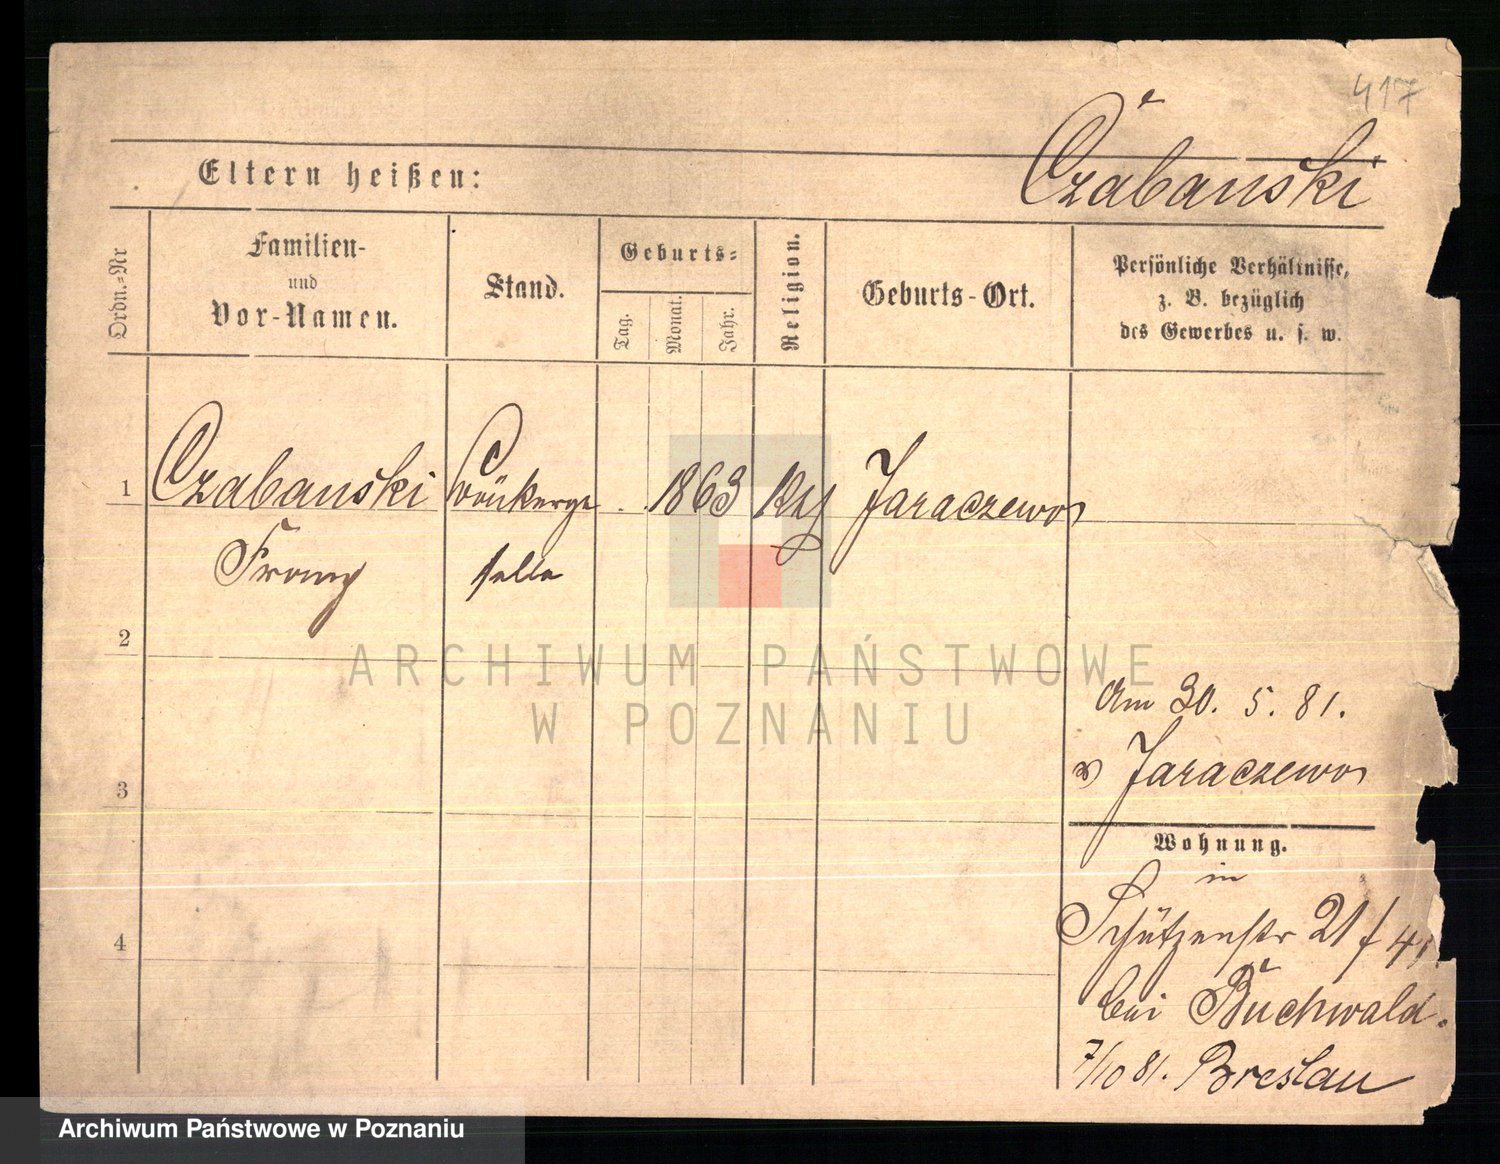 417
Czabanski
Eltern heißen:
Ordn.-Nr
Familien-
und
Vor-Namen.
Stand.
Geburts-
Tag.
Monat.
Jahr.
Religion.
Geburts-Ort.
Persönliche Verhältnisse,
z. B. bezüglich
des Gewerbes u. s. w.
1 Czabanski 1863 Jaraczewo
Franz selle
2
ARCHIWUM PAŃSTWOWE
W POZNANIU
Am 30. 5. 81.
v Jaraczewo
3
Wohnung.
in
4
Schützenstr 21
bei Buchwald.
7/10 81. Breslau
Archiwum Państwowe w Poznaniu